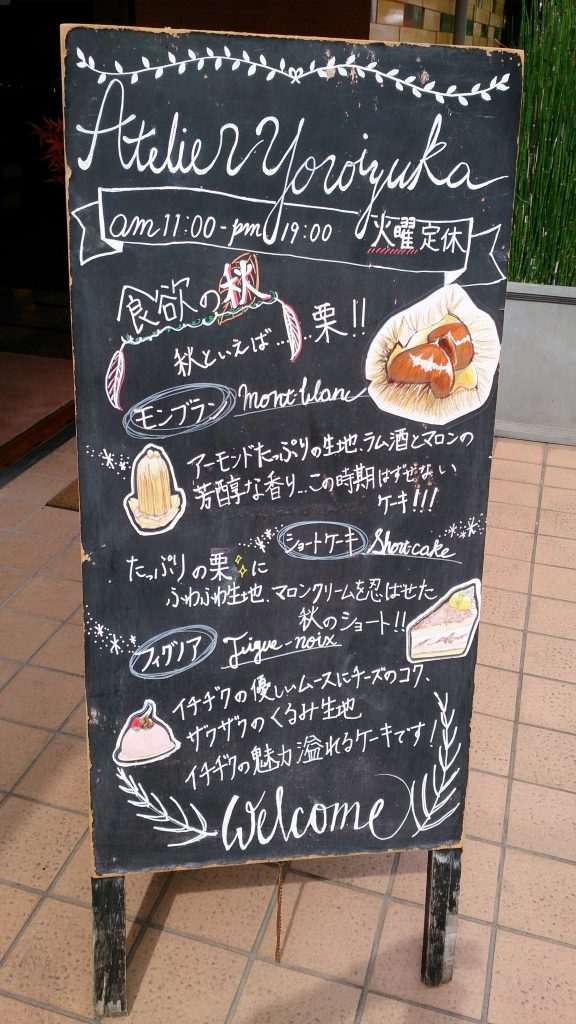 Atelier Yoroizuka
am 11:00 - pm 19:00 火曜定休
食欲の秋
秋といえば......栗!!
モンブラン Mont-blanc
アーモンドたっぷりの生地、ラム酒とマロンの
芳醇な香り...この時期はずせない
ケーキ!!!
ショートケーキ Shortcake
たっぷりの栗に
ふわふわ生地、マロンクリームを忍ばせた
秋のショート!!
フィグノア Figue-noix
イチヂクの優しいムースにチーズのコク、
ザクザクのくるみ生地
イチヂクの魅力溢れるケーキです!
Welcome